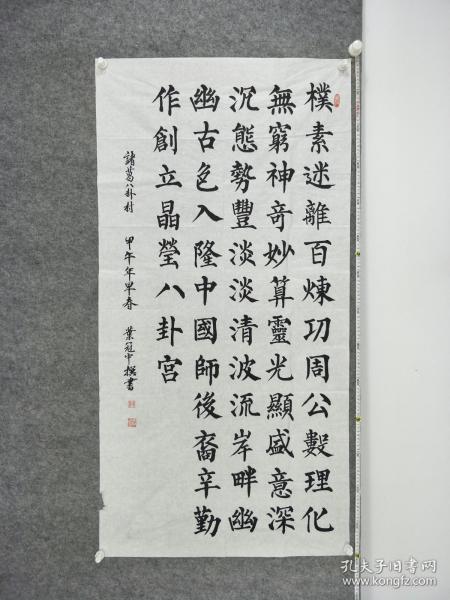 樸素迷離百煉功周公數理化
無窮神奇妙算靈光顯盛意深
沉態勢豐淡淡清波流岸畔幽
幽古色入隆中國師後裔辛勤
作創立晶瑩八卦宮
諸葛八卦村 甲午年早春 葉冠中撰書
孔夫子旧书网
www.kongfz.com